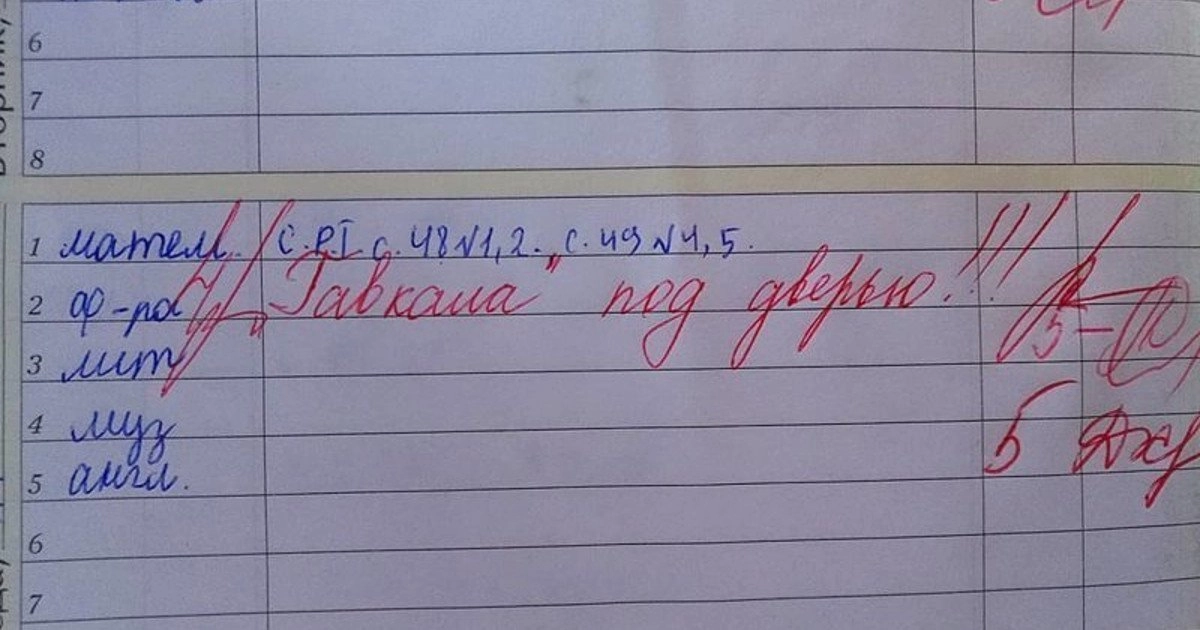 6
7
8
1 матем. С.РІ с. 48 №1,2. с. 49 №4,5.
2 ф-ра "Гавкала" под дверью!!!
3 лит 5-
4 муз
5 англ. 5
6
7